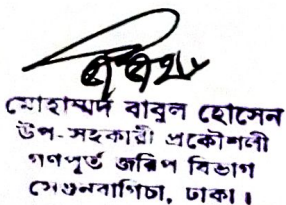 মোহাম্মদ বাবুল হোসেন
উপ-সহকারী প্রকৌশলী
গণপূর্ত জরিপ বিভাগ
সেগুনবাগিচা, ঢাকা।